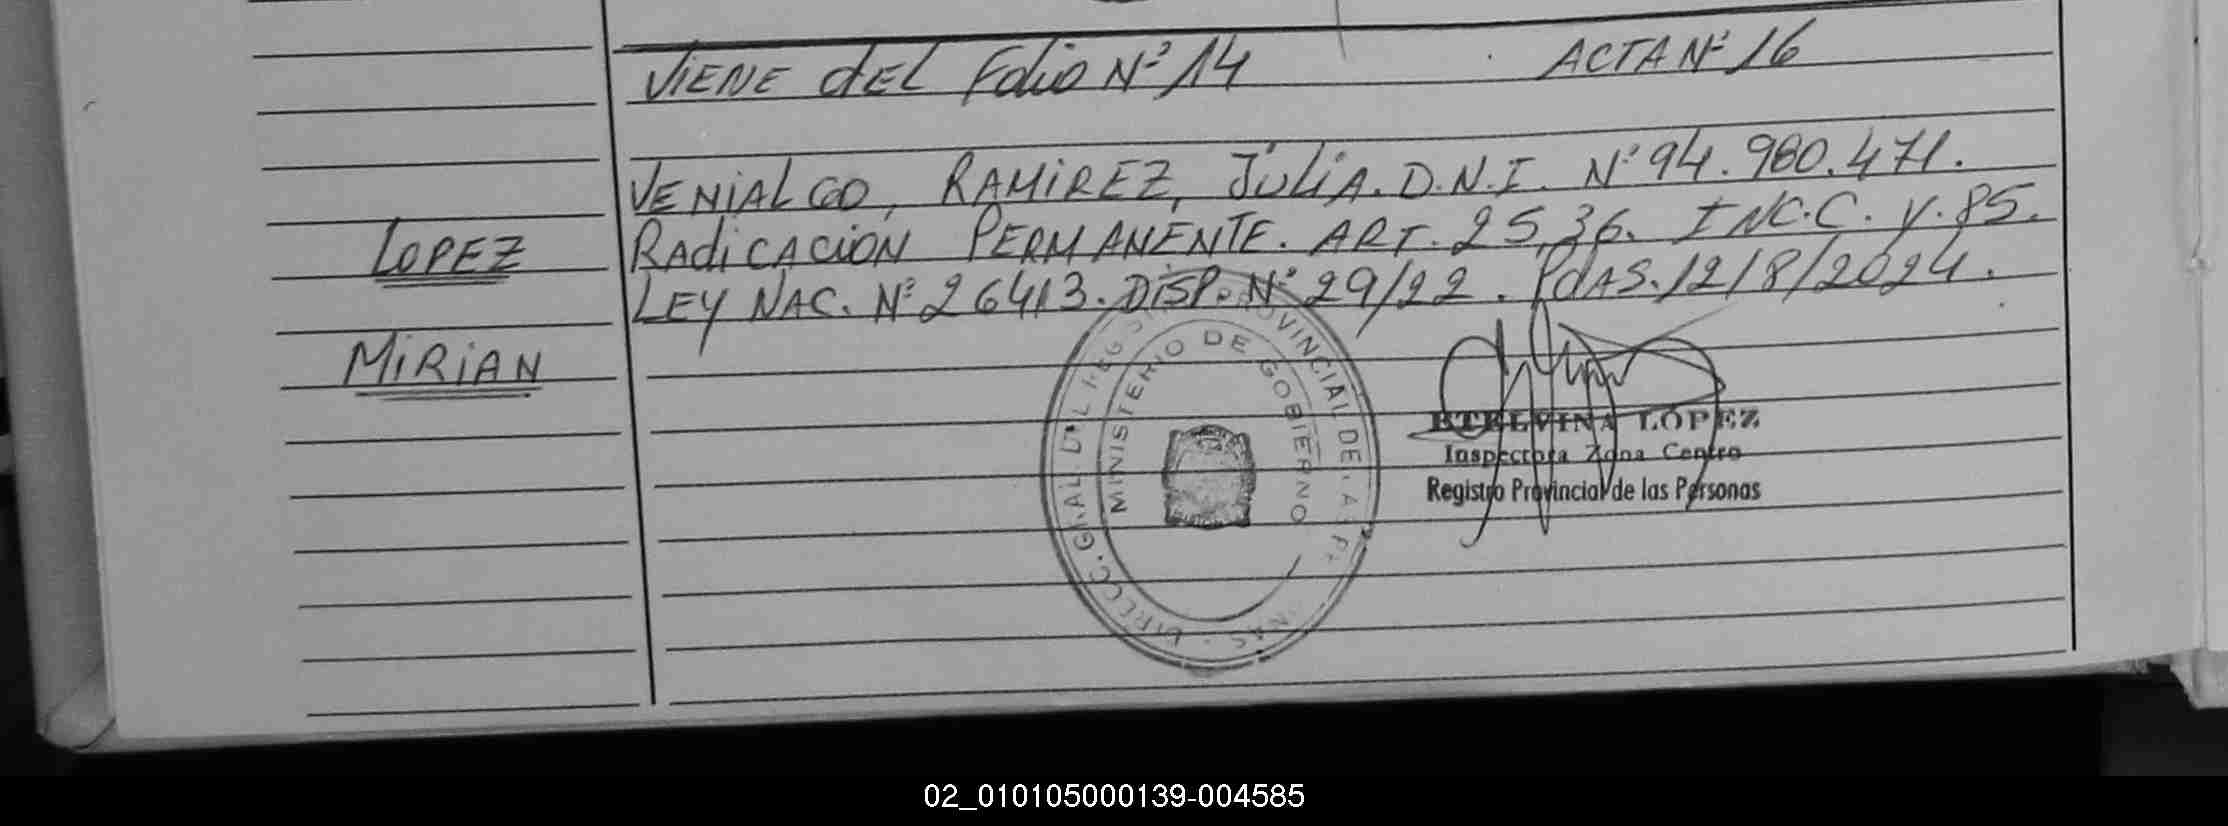 VIENE dEL Folio Nº 14 ACTA Nº 16
VENIALGO, RAMIREZ, JULIA. D.N.I. Nº 94.980.471.
LOPEZ RAdiCACiON PERMANENTE. ART. 25,36. INC.C. y. 85.
LEY NAC. Nº 26413. DISP. Nº 29/22. PdAS. 12/8/2024.
MiRiAN
MINISTERIO DE GOBIERNO
ETELVINA LOPEZ
Inspectora Zona Centro
Registro Provincial de las Personas
02_010105000139-004585